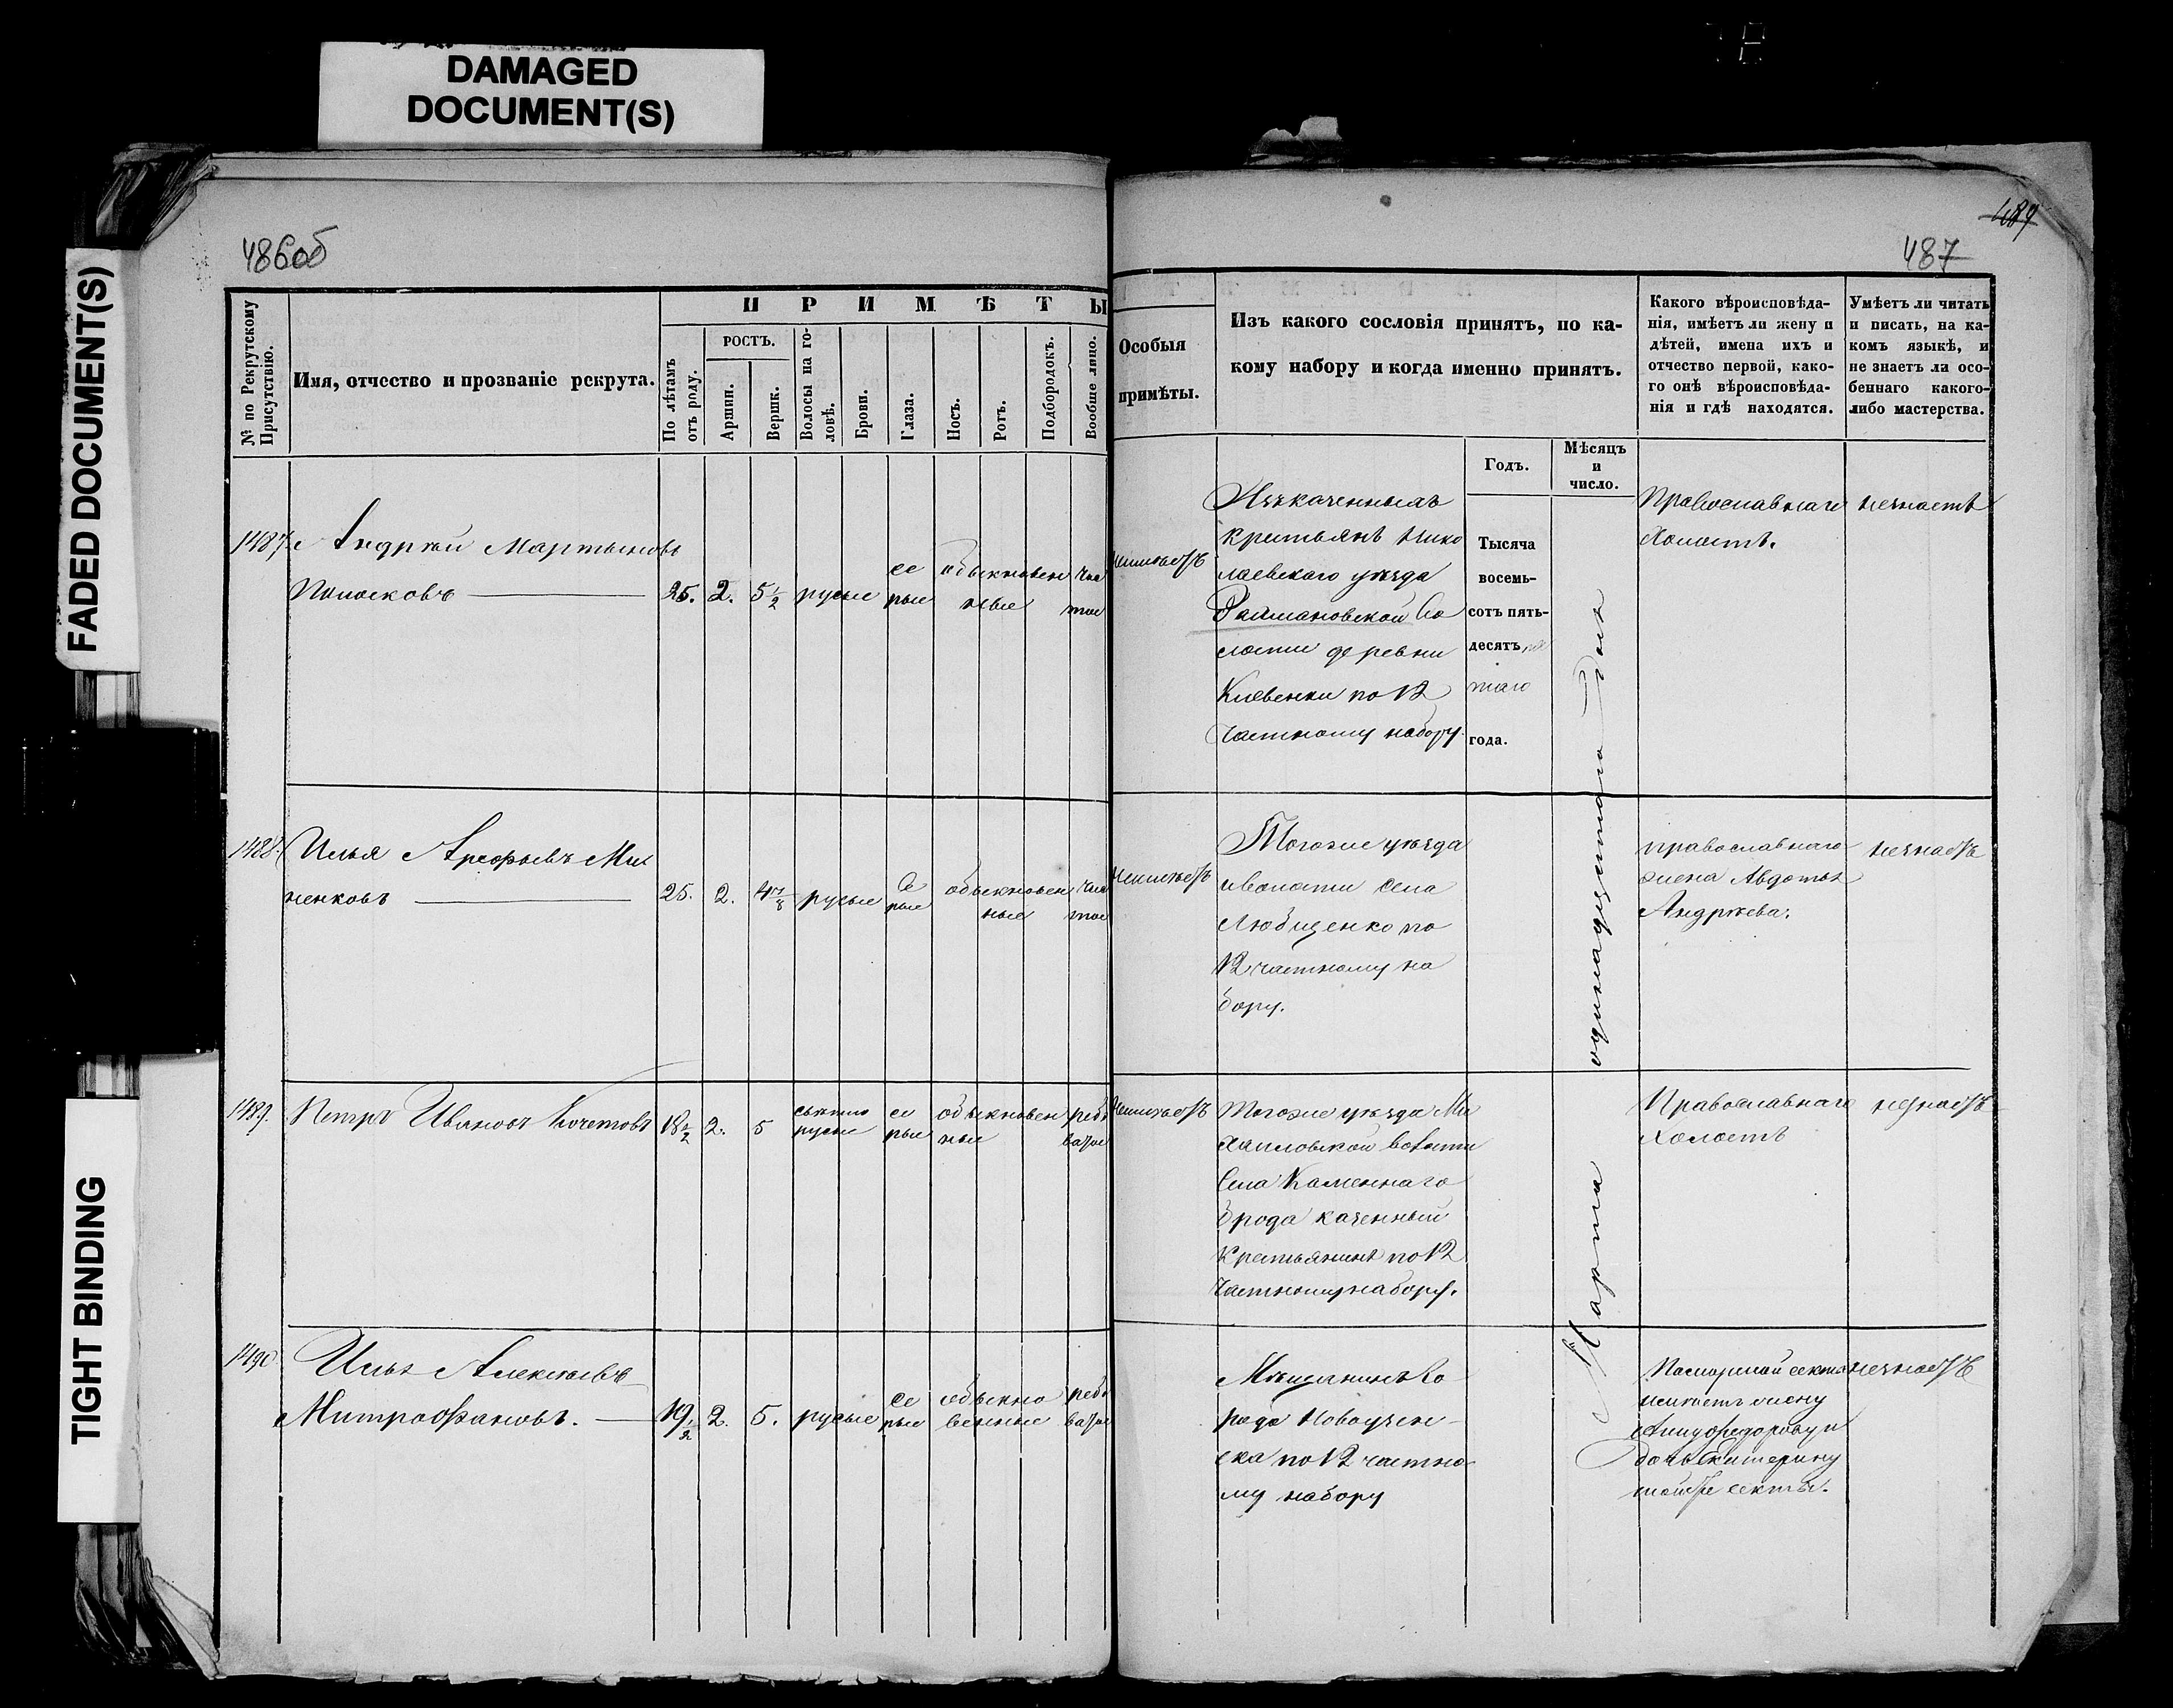 DAMAGED
DOCUMENT(S)
FADED DOCUMENT(S)
TIGHT BINDING
486об
№ по Рекрутскому
Присутствію.
Имя, отчество и прозваніе рекрута.
ПРИМѢТЫ
По лѣтамъ
отъ роду.
РОСТЪ.
Аршин.
Вершк.
Волосы на го-
ловѣ.
Брови.
Глаза.
Носъ.
Ротъ.
Подбородокъ.
Вообще лицо.
1487.
Андрѣй Мартыновъ
25. 2. 5 1/2 русые
се
рые
обыкновен
ные
чис
тое
1488.
Илья Арефьевъ Ми
ненковъ
25. 2. 4 7/8 русые
Се
рые
обыкновен
ные
чис
тое
1489.
Петръ Ивановъ Кочетовъ
18 1/2 2. 5
свѣтло
русые
се
рые
обыкновен
ные
рябо
ватое
1490.
Илья Алексѣевъ
Митрофановъ.
19 1/2 2. 5. русые
се
рые
обыкно
венные
рябо
ватое
489
487
Особыя
примѣты.
Изъ какого сословія принятъ, по ка-
кому набору и когда именно принятъ.
Какого вѣроисповѣда-
нія, имѣетъ ли жену и
дѣтей, имена ихъ и
отчество первой, како-
го онѣ вѣроисповѣда-
нія и гдѣ находятся.
Умѣетъ ли читать
и писать, на ка-
комъ языкѣ, и
не знаетъ ли осо-
беннаго какого-
либо мастерства.
Годъ.
Мѣсяцъ
и
число.
неимѣетъ
Изъ казенныхъ
крестьянъ Нико
лаевскаго уѣзда
Во
лости деревни
Клевенки по 12
Частному набору.
Тысяча
восемь-
сотъ пять-
десятъ пя
таго
года.
Марта одиннадцатаго дня
Православнаго
Холостъ.
незнаетъ
неимѣетъ
Тогоже уѣзда
иволости села
Любиценко по
12 частному на
бору.
православнаго
жена Авдотья
Андрѣева.
незнаетъ
неимѣетъ
Тогоже уѣзда Ми
хайловской волости
Села Каменнаго
брода казенный
Крестьянинъ по 12
Частному набору.
Православнаго
Холостъ
незнаетъ
Мѣщанинъ Го
рода Новоузен-
ска по 12 частно
му набору
секты
имѣетъ жену
Анну Федорову и
дочь Екатерину
тойже секты.
незнаетъ